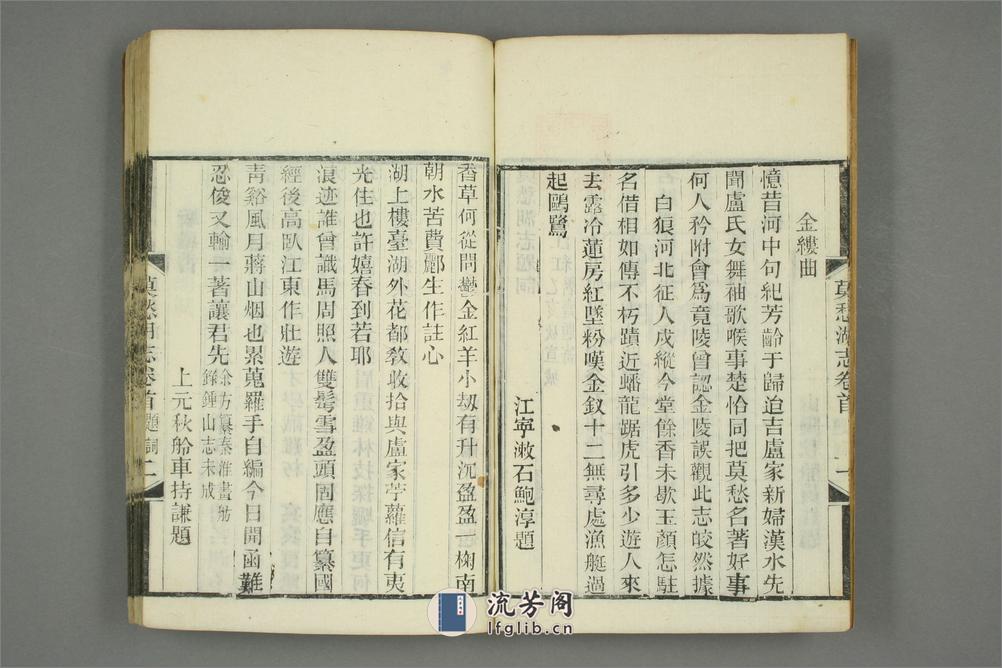 金縷曲
憶昔河中句紀芳齡于歸迨吉盧家新婦漢水先
聞盧氏女舞袖歌喉事楚恰同把莫愁名著好事
何人矜附會為竟陵曾認金陵誤觀此志皎然據
白狼河北征人戍縱今堂餘香未歇玉顏怎駐
名借相如傳不朽蹟近蟠龍踞虎引多少遊人來
去露冷蓮房紅墜粉嘆金釵十二無尋處漁艇過
起鷗鷺
江寧漱石鮑淳題
莫愁湖志卷首
香草何從問鬱金紅羊小劫有升沉盈盈一掬南
朝水苦費酈生作註心
湖上樓臺湖外花都教收拾與盧家苧蘿信有夷
光住也許嬉春到若耶
浪迹誰曾識馬周照人雙鬢雪盈頭固應自纂國
經後高臥江東作壯遊
青谿風月蔣山烟也累蒐羅手自編今日開函難
忍俊又輸一著讓君先
余方纂秦淮畫舫
錄鍾山志未成
上元秋舲車持謙題
莫愁湖志卷首 題詞 二
流芳阁
lfglib.cn